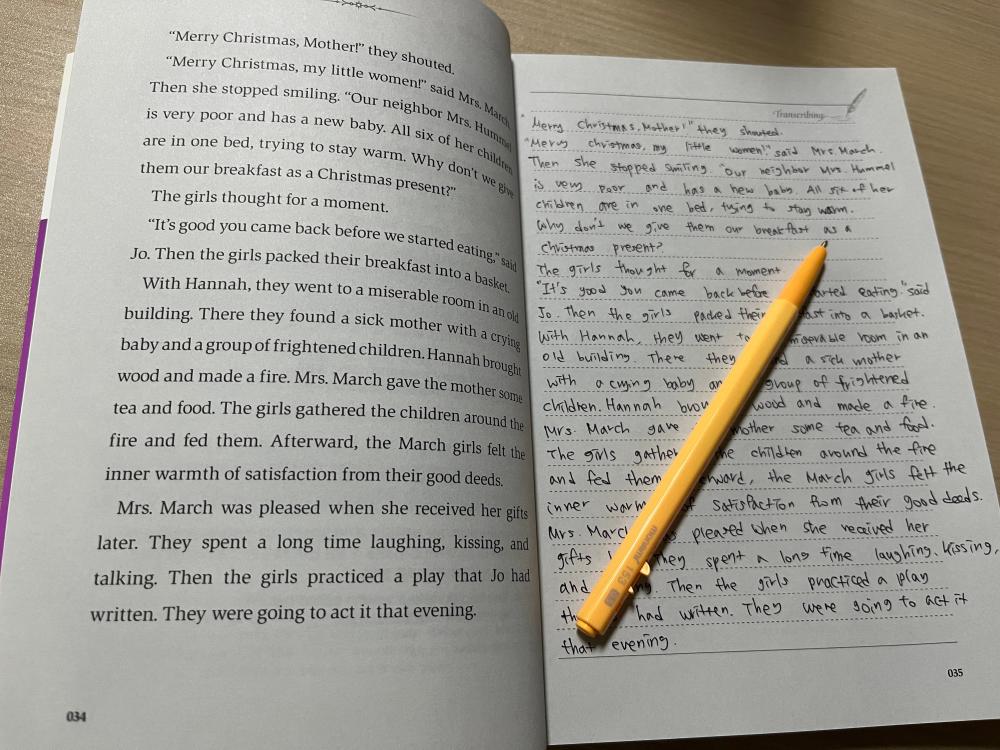 "Merry Christmas, Mother!" they shouted.
"Merry Christmas, my little women!" said Mrs. March.
Then she stopped smiling. "Our neighbor Mrs. Hummel
is very poor and has a new baby. All six of her children
are in one bed, trying to stay warm. Why don't we give
them our breakfast as a Christmas present?"
The girls thought for a moment.
"It's good you came back before we started eating," said
Jo. Then the girls packed their breakfast into a basket.
With Hannah, they went to a miserable room in an old
building. There they found a sick mother with a crying
baby and a group of frightened children. Hannah brought
wood and made a fire. Mrs. March gave the mother some
tea and food. The girls gathered the children around the
fire and fed them. Afterward, the March girls felt the
inner warmth of satisfaction from their good deeds.
Mrs. March was pleased when she received her gifts
later. They spent a long time laughing, kissing, and
talking. Then the girls practiced a play that Jo had
written. They were going to act it that evening.
034
Transcribing
"Merry Christmas, Mother!" they shouted.
"Merry christmas, my little women!" said Mrs. March.
Then she stopped smiling. "Our neighbor Mrs. Hummel
is very poor and has a new baby. All six of her
children are in one bed, trying to stay warm.
Why don't we give them our breakfast as a
christmas present?
The girls thought for a moment
"It's good you came back before arted eating." said
Jo. Then the girls packed their ast into a basket.
With Hannah, they went to miserable room in an
old building. There they d a sick mother
with a crying baby an group of frightened
children. Hannah brou wood and made a fire.
Mrs. March gave mother some tea and food.
The girls gather he children around the fire
and fed them erward, the March girls felt the
inner warm f satisfaction from their good deeds.
Mrs. March s pleased when she received her
gifts They spent a long time laughing, kissing,
and ng. Then the girls practiced a play
th had written. They were going to act it
that evening.
monami 153
035